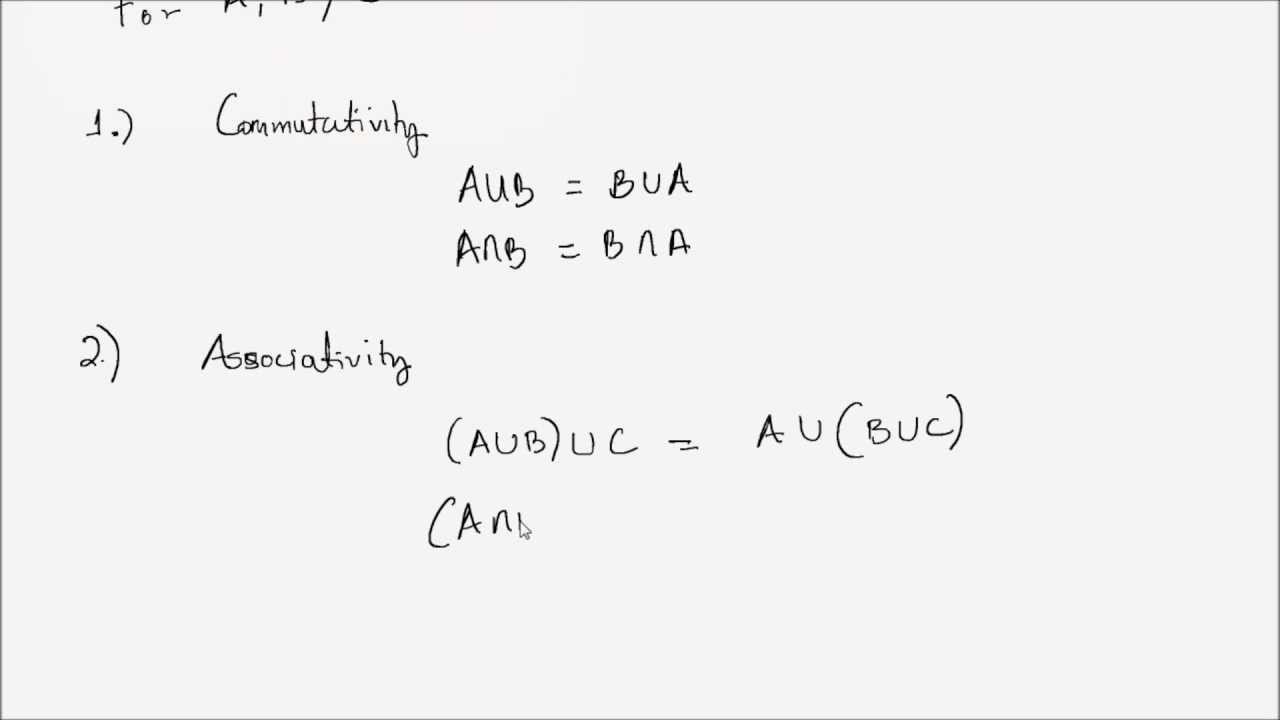 for A, B,
1.) Commutativity
A∪B = B∪A
A∩B = B∩A
2.) Associativity
(A∪B)∪C = A∪(B∪C)
(A∩